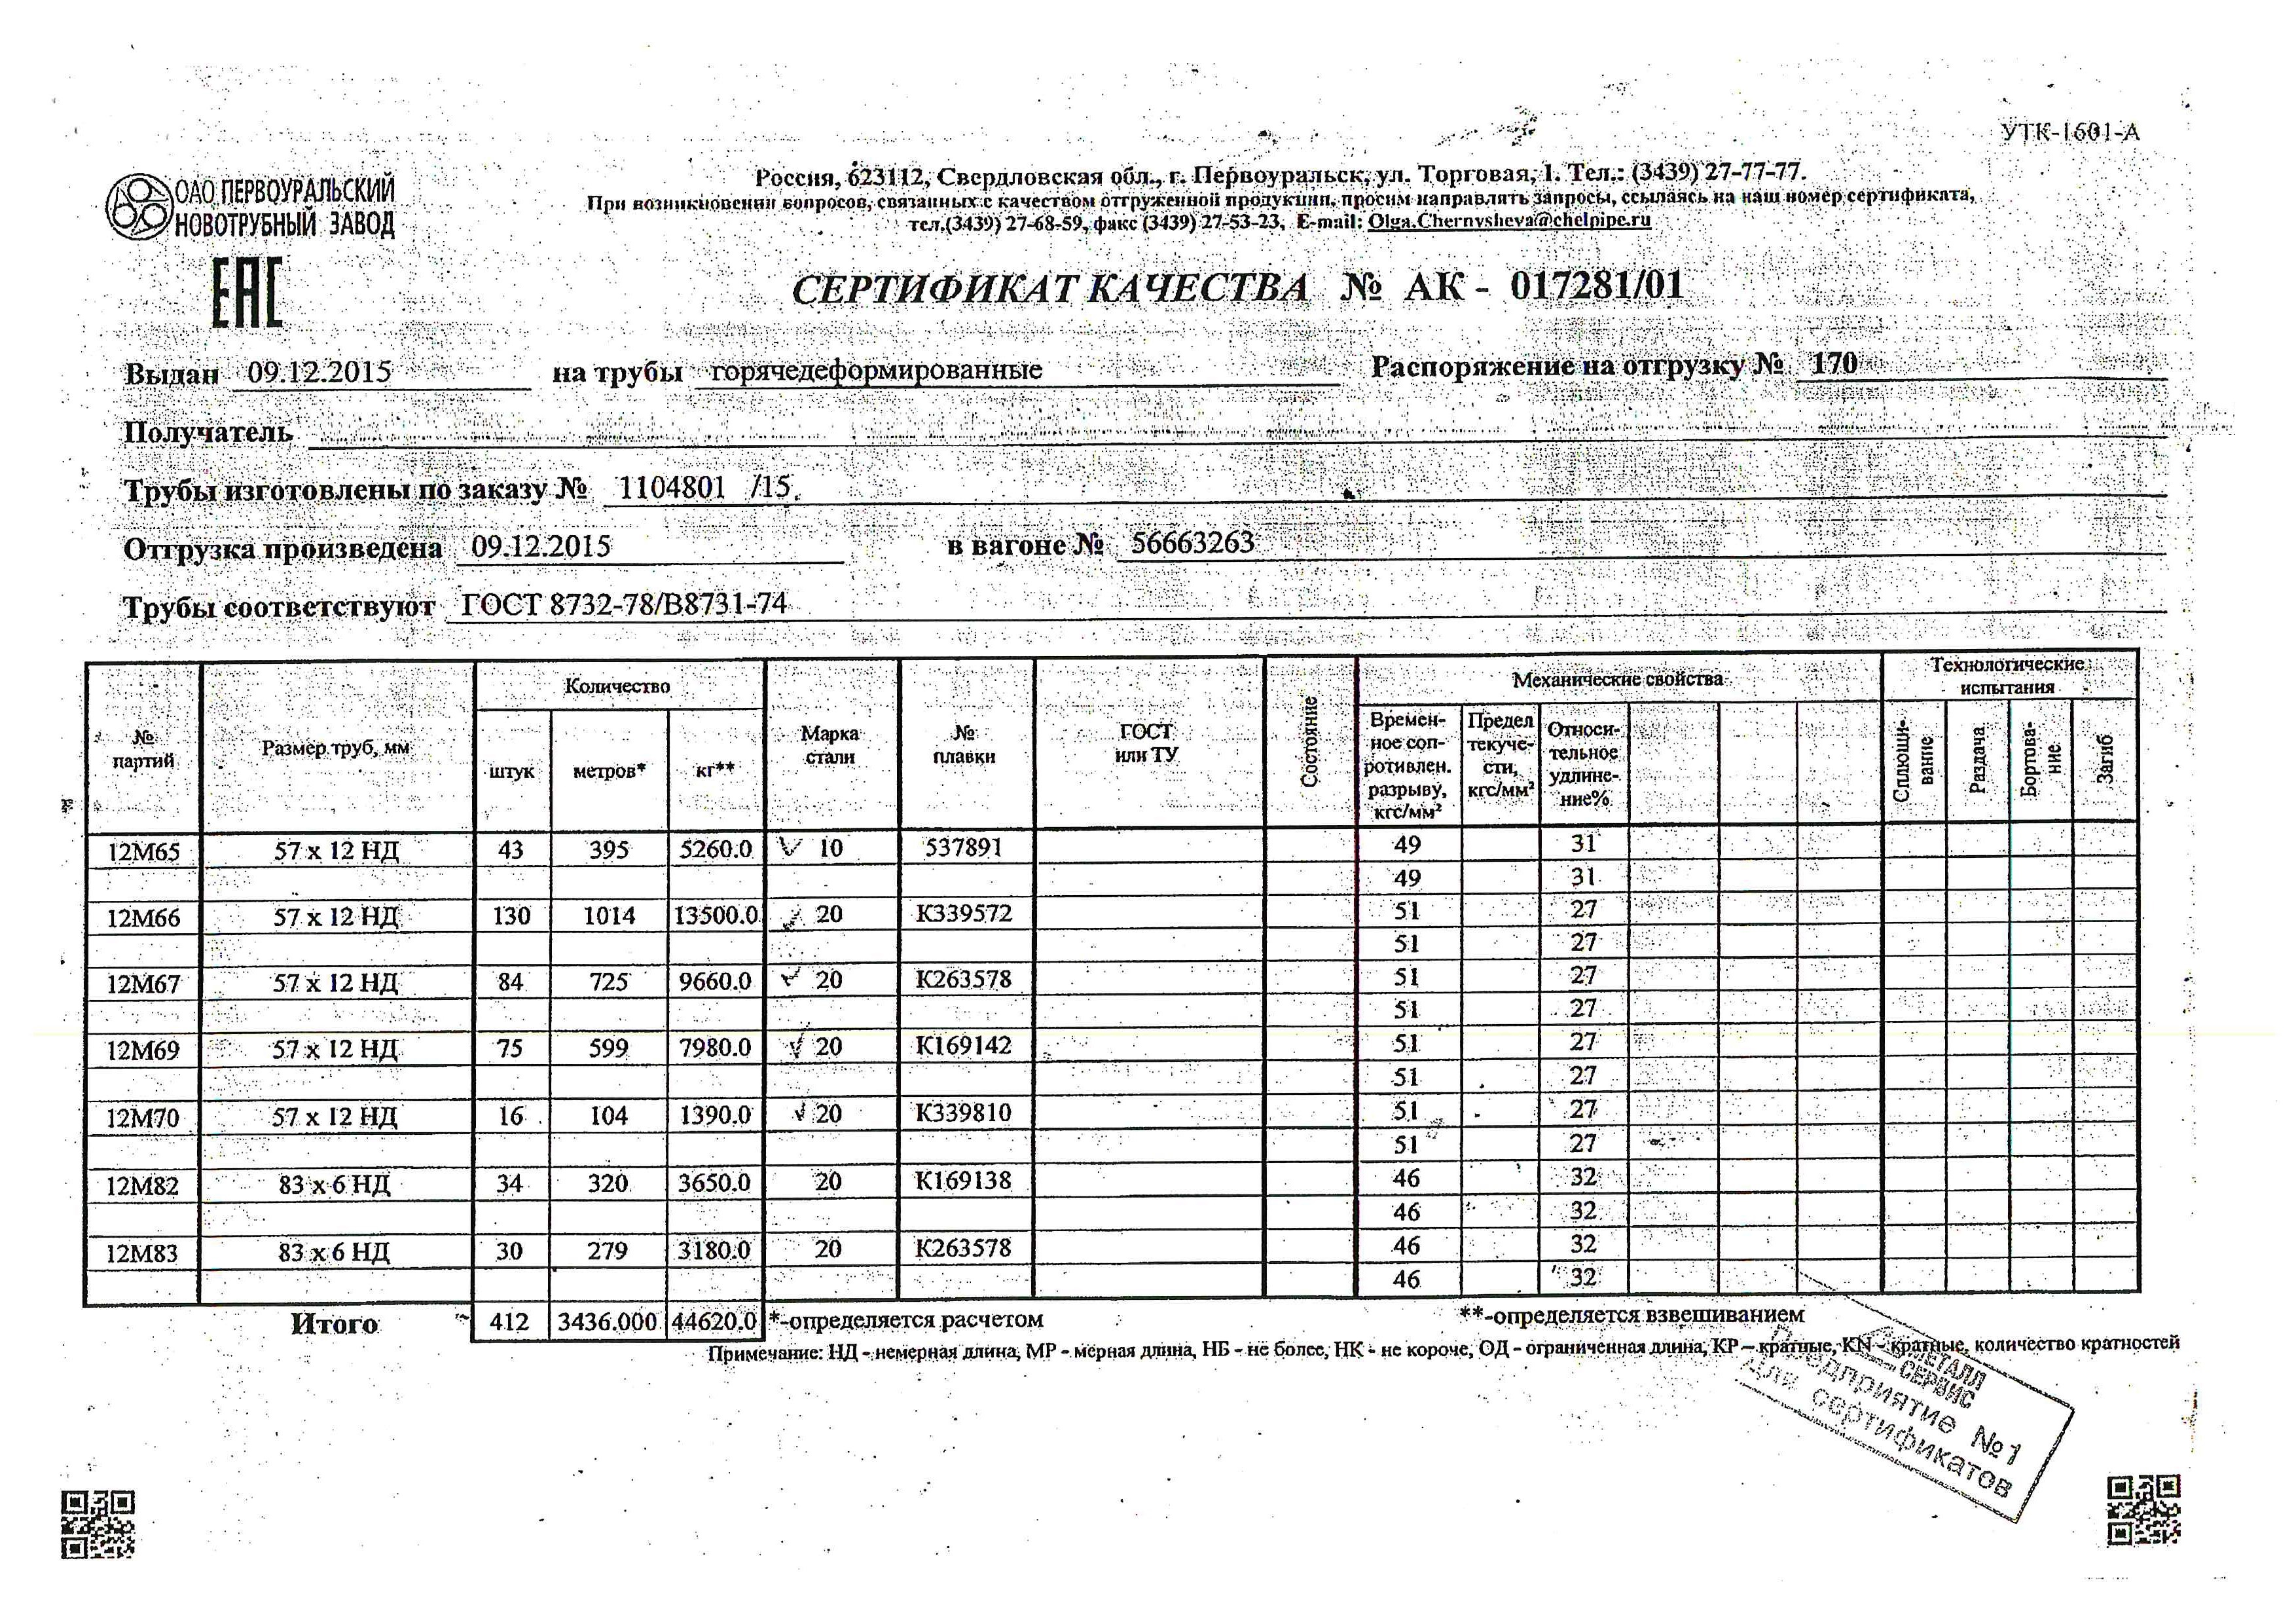 УТК-1601-А
ОАО ПЕРВОУРАЛЬСКИЙ
НОВОТРУБНЫЙ ЗАВОД
Россия, 623112, Свердловская обл., г. Первоуральск, ул. Торговая, 1. Тел.: (3439) 27-77-77.
При возникновении вопросов, связанных с качеством отгруженной продукции, просим направлять запросы, ссылаясь на наш номер сертификата,
тел.(3439) 27-68-59, факс (3439) 27-53-23, E-mail: Olga.Chernysheva@chelpipe.ru
ЕАС
СЕРТИФИКАТ КАЧЕСТВА № АК - 017281/01
Выдан 09.12.2015 на трубы горячедеформированные Распоряжение на отгрузку № 170
Получатель
Трубы изготовлены по заказу № 1104801 /15.
Отгрузка произведена 09.12.2015 в вагоне № 56663263
Трубы соответствуют ГОСТ 8732-78/В8731-74
№ партий Размер труб, мм Количество Марка стали № плавки ГОСТ или ТУ Состояние Механические свойства Технологические испытания
штук метров* кг** Времен-ное соп-ротивлен. разрыву, кгс/мм² Предел текуче-сти, кгс/мм² Относи-тельное удлине-ние% Сплющи-вание Раздача Бортова-ние Загиб
12М65 57 х 12 НД 43 395 5260.0 10 537891 49 31
49 31
12М66 57 х 12 НД 130 1014 13500.0 20 К339572 51 27
51 27
12М67 57 х 12 НД 84 725 9660.0 20 К263578 51 27
51 27
12М69 57 х 12 НД 75 599 7980.0 20 К169142 51 27
51 27
12М70 57 х 12 НД 16 104 1390.0 20 К339810 51 27
51 27
12М82 83 х 6 НД 34 320 3650.0 20 К169138 46 32
46 32
12М83 83 х 6 НД 30 279 3180.0 20 К263578 46 32
46 32
Итого 412 3436.000 44620.0 *-определяется расчетом **-определяется взвешиванием
Примечание: НД - немерная длина, МР - мерная длина, НБ - не более, НК - не короче, ОД - ограниченная длина, КР – кратные, KN - кратные, количество кратностей
МЕТАЛЛ
СЕРВИС
Предприятие №1
Для сертификатов